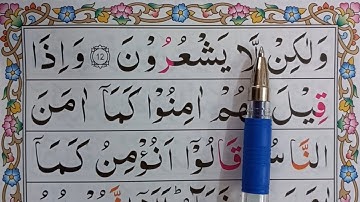 وَلٰكِنْ لَّا يَشْعُرُوْنَ ﴿12﴾ وَاِذَا
قِيْلَ هُمْ اٰمِنُوْا كَمَاۤ اٰمَنَ
النَّاسُ قَالُوْۤا اَنُؤْمِنُ كَمَاۤ